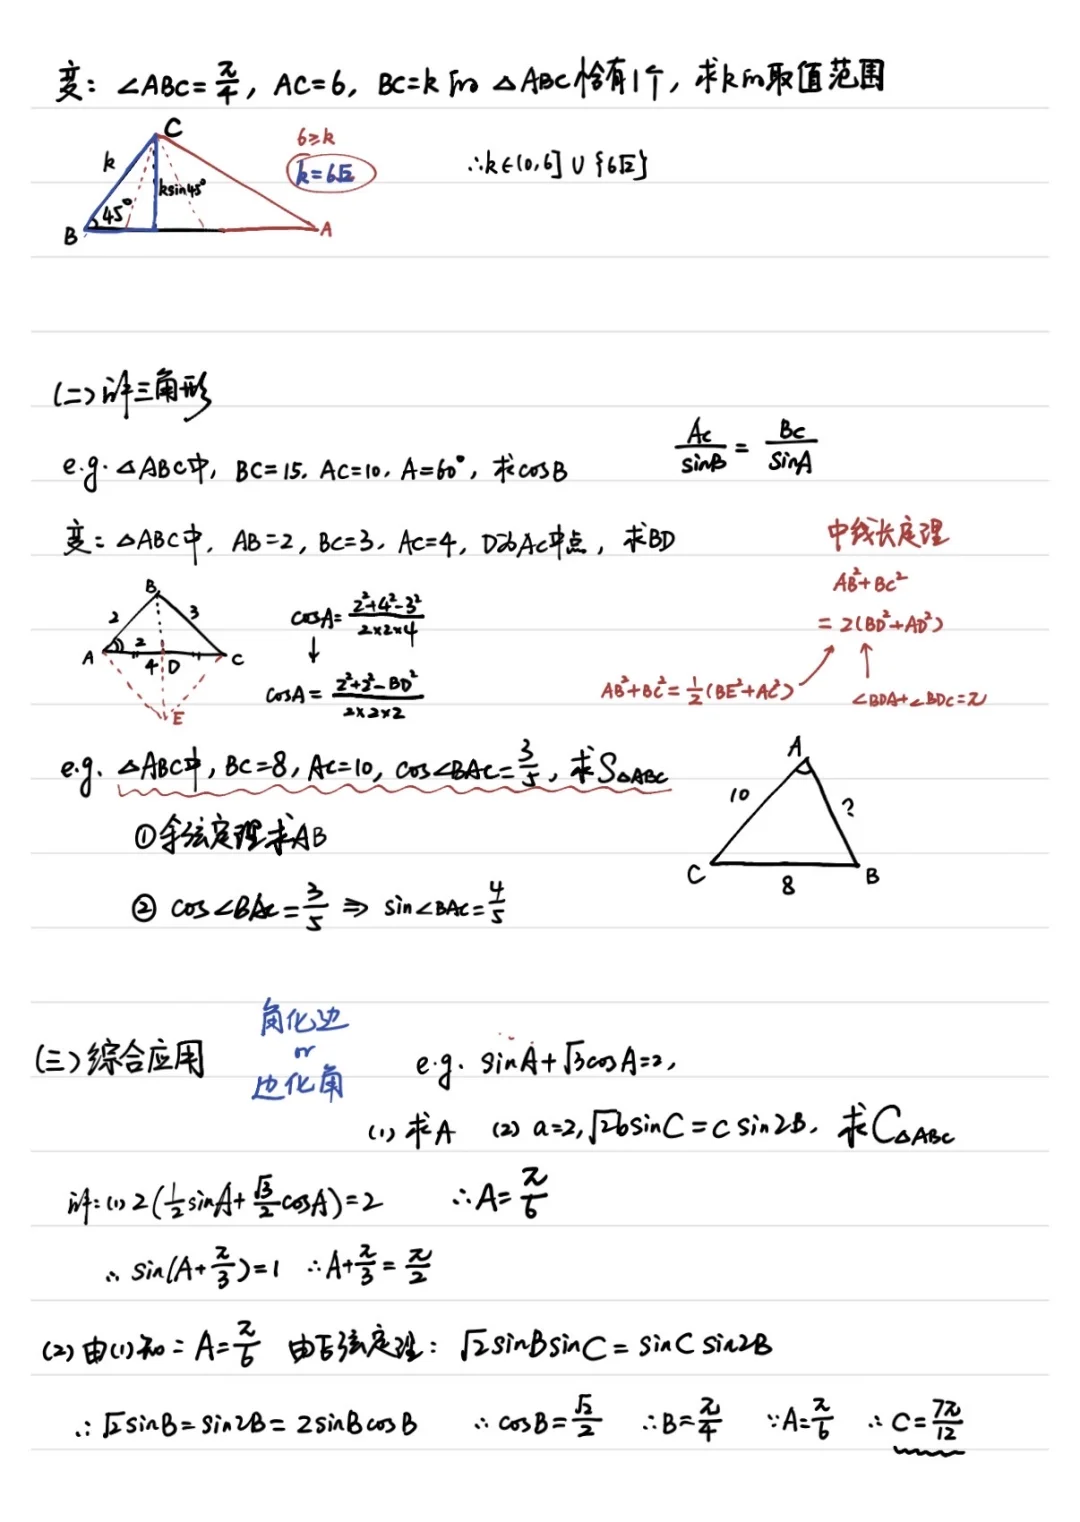 变: ∠ABC=π/4, AC=6, BC=k的 △ABC恰有1个, 求k的取值范围
C
k
ksin45°
45°
B
A
6≥k
k=6√2
∴k∈(0,6]∪{6√2}
(二)解三角形
e.g. △ABC中, BC=15. AC=10, A=60°, 求cosB
AC/sinB = BC/sinA
变: △ABC中, AB=2, BC=3, AC=4, D为AC中点, 求BD
B
2
3
A
2
4
D
C
E
cosA= (2²+4²-3²)/(2×2×4)
↓
cosA= (2²+2²-BD²)/(2×2×2)
中线长定理
AB²+BC²
= 2(BD²+AD²)
AB²+BC²=1/2(BE²+AC²)
∠BDA+∠BDC=π
e.g. △ABC中, BC=8, AC=10, cos∠BAC=3/5, 求S△ABC
①余弦定理求AB
② cos∠BAC=3/5 ⇒ sin∠BAC=4/5
A
10
?
C
8
B
(三)综合应用
角化边
or
边化角
e.g. sinA+√3cosA=2,
(1) 求A (2) a=2, √2bsinC=c sin2B, 求C△ABC
解:(1) 2(1/2sinA+√3/2cosA)=2 ∴A=π/6
∴ sin(A+π/3)=1 ∴A+π/3=π/2
(2) 由(1)知: A=π/6 由正弦定理: √2sinBsinC=sinC sin2B
∴√2sinB=sin2B=2sinBcosB ∴cosB=√2/2 ∴B=π/4 ∵A=π/6 ∴C=7π/12